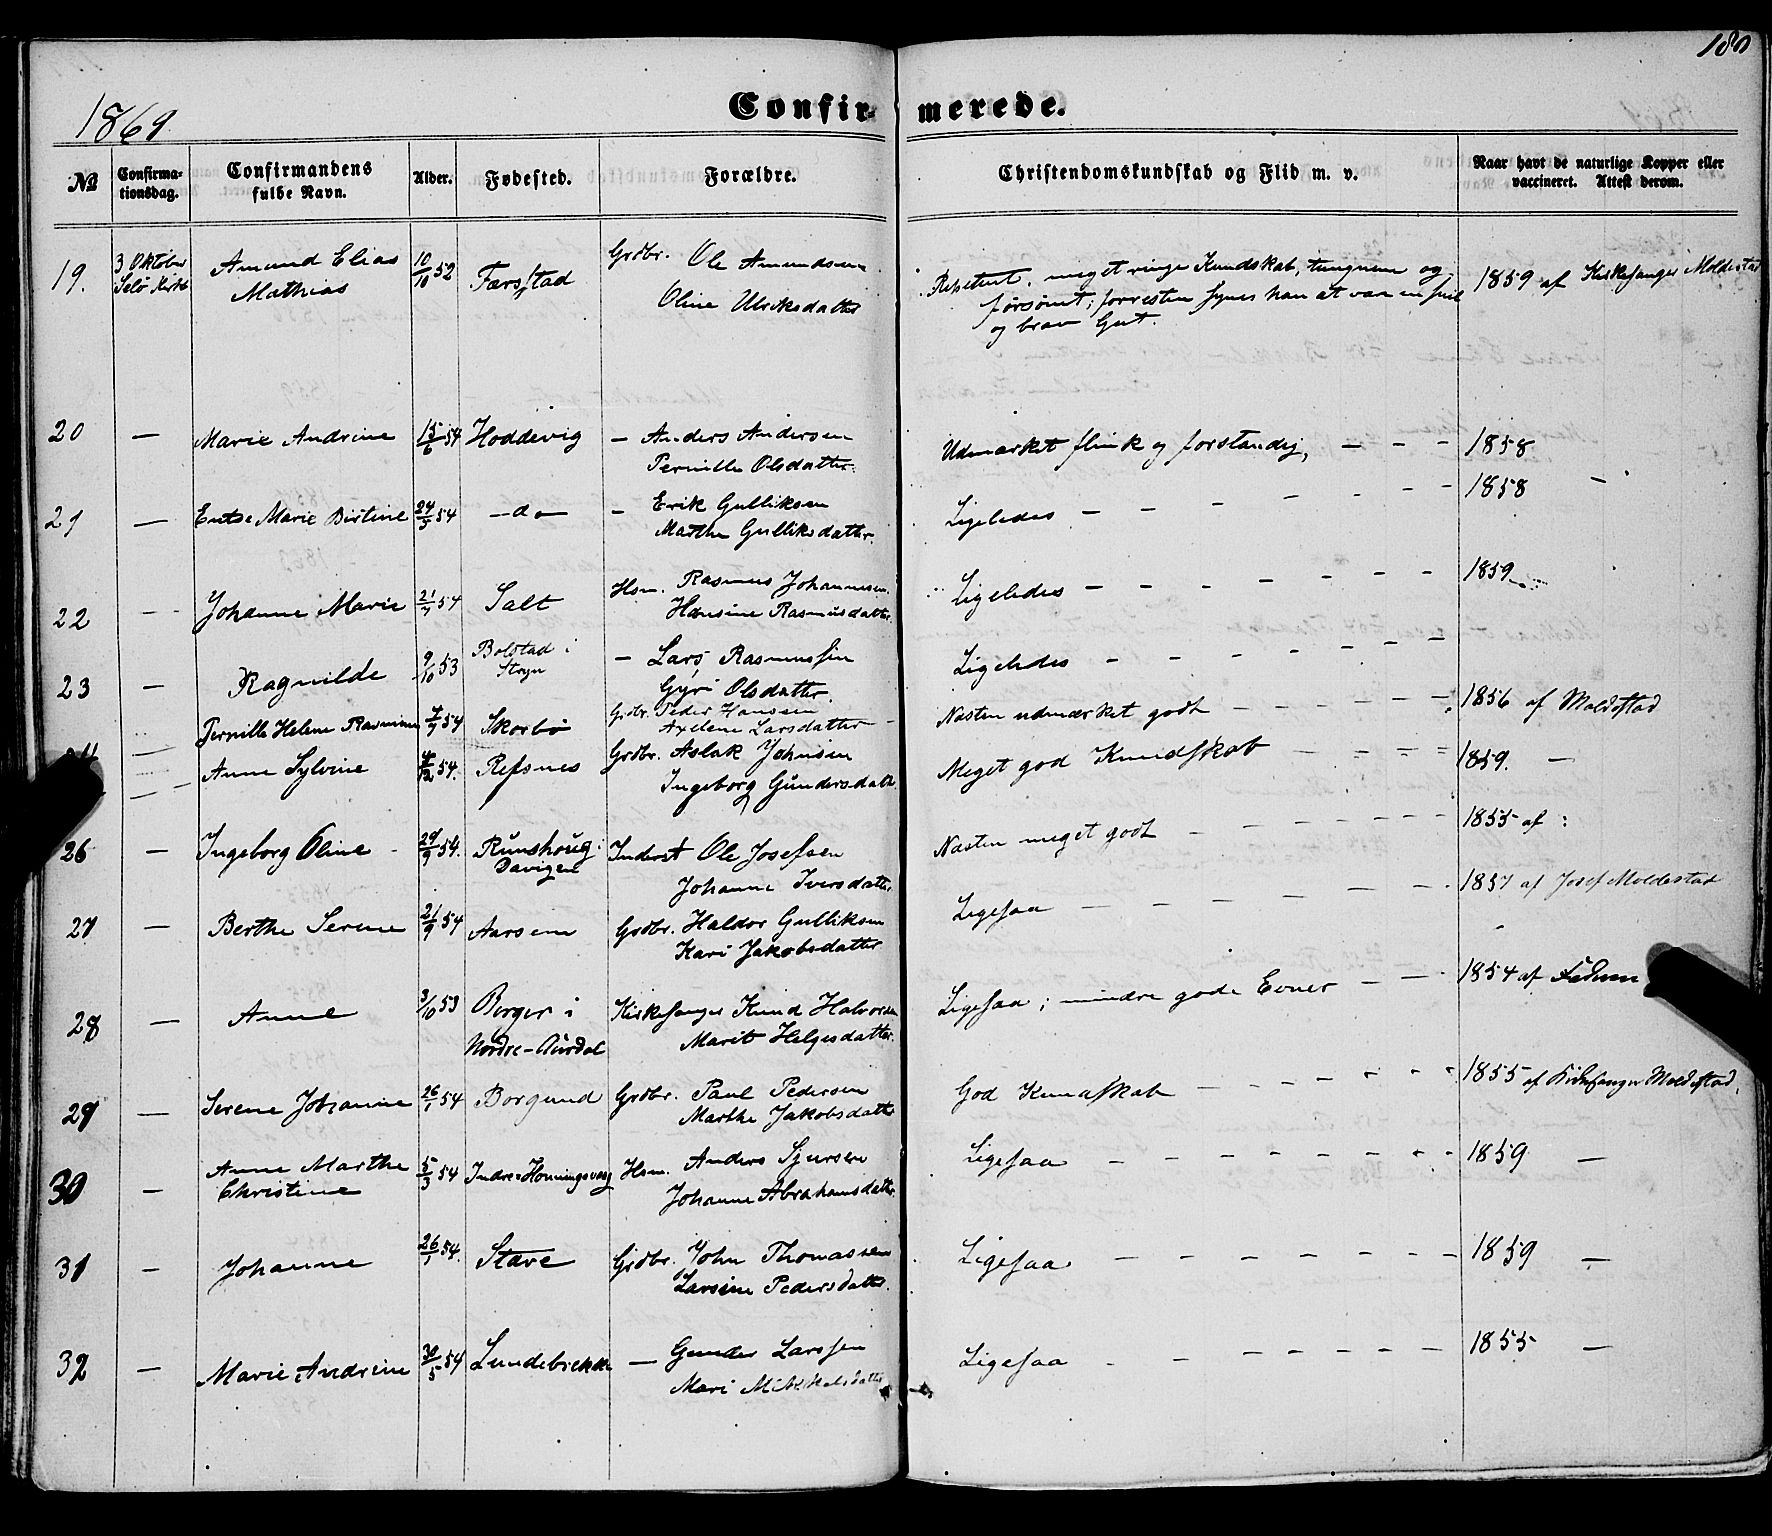 180
1869
Confirmerede.
No
Confirmationsdag.
Confirmandens fulde Navn.
Alder.
Fødested.
Forældre.
Christendomskundskab og Flid m. v.
Naar havt de naturlige Kopper eller vaccineret. Attest derom.
19. 3 Oktober Amund Elias 10/10 52 Færstad Grdbr. Ole Amundsen Repetent. meget ringe Kundskab, tungnem og 1859 af Kirkesanger Moldestad
Selø Kirke Mathias Oline Ulriksdatter forsømt; forresten synes han at være en snil
og brav Gut.
20 — Marie Andrine 15/6 54 Hoddevig — Anders Andersen Udmærket flink og forstandig, — — — 1858
Pernille Olsdatter.
21 — Entse Marie Birtine 24/5 54 — do — — Erik Gulliksen Ligeledes — — — — — — 1858 —
Marthe Gulliksdatter.
22 — Johanne Marie 21/7 54 Salt Hsm. Rasmus Johannesen Ligeledes — — — — — — 1859
Hansine Rasmusdatter.
23 — Ragnilde 9/10 53 Bolstad i — Lars Rasmussen Ligeledes — — — — — —
Stryn Gyri Olsdatter.
Pernille Helene Rasmine 7/7 54 Skorbø Grdbr. Peder Hanssen Næsten udmærket godt — — — — — 1856 af Moldestad
Axeliene Larsdatter
Anne Sylvine 4/12 54. Refsnes Grdbr. Aslak Johnsen Meget god Kundskab — — — — 1859. —
Ingeborg Gundersdatter
26 — Ingeborg Oline 29/9 54. Runshoug i Inderst Ole Josefsen Næsten meget godt — — — — — 1855 af :
Davigen Johanne Iversdatter
27 — Berthe Serene 21/9 54 Aarsem Grdbr. Haldor Gulliksen Ligesaa — — — — — 1857 af Josef Moldestad
Kari Jakobsdatter
28 — Anne 3/10 53 Berger i Kirkesanger Knud Halvorsen Ligesaa; mindre gode Evner — — 1854 af
Nordre-Aurdal Marit Helgesdatter.
29 — Serene Johanne 26/1 54 Borgund Grdbr. Paul Pedersen God Kundskab — — — — — 1855 af Kirkesanger Moldestad.
Marthe Jakobsdatter
30 — Anne Marthe 5/3 54 Indre-Honningsvog Hsm. Anders Sjursen Ligesaa — — — — — — 1859 —
Christine Johanne Abrahamsdatter.
31 — Johanne 26/1 54. Stave Grdbr. John Thomassen Ligesaa — — — — — — 1859 —
Larsine Pedersdatter.
32 — Marie Andrine 30/5 54 Lundebrekke — Gunder Larssen Ligesaa — — — — — — 1855 —
Mari Mikkelsdatter